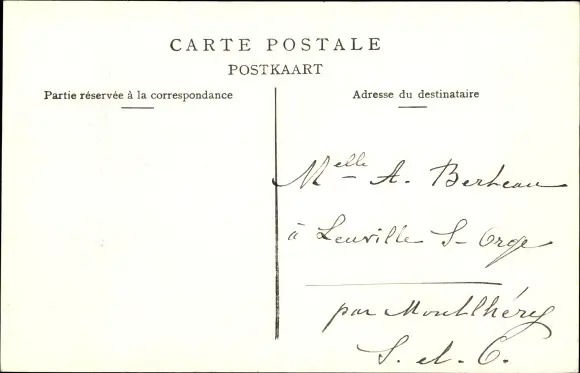 CARTE POSTALE
POSTKAART
Partie réservée à la correspondance
Adresse du destinataire
Melle A. Berheau
à Leuville S- Orge
par Montlhéry
S. et. O.